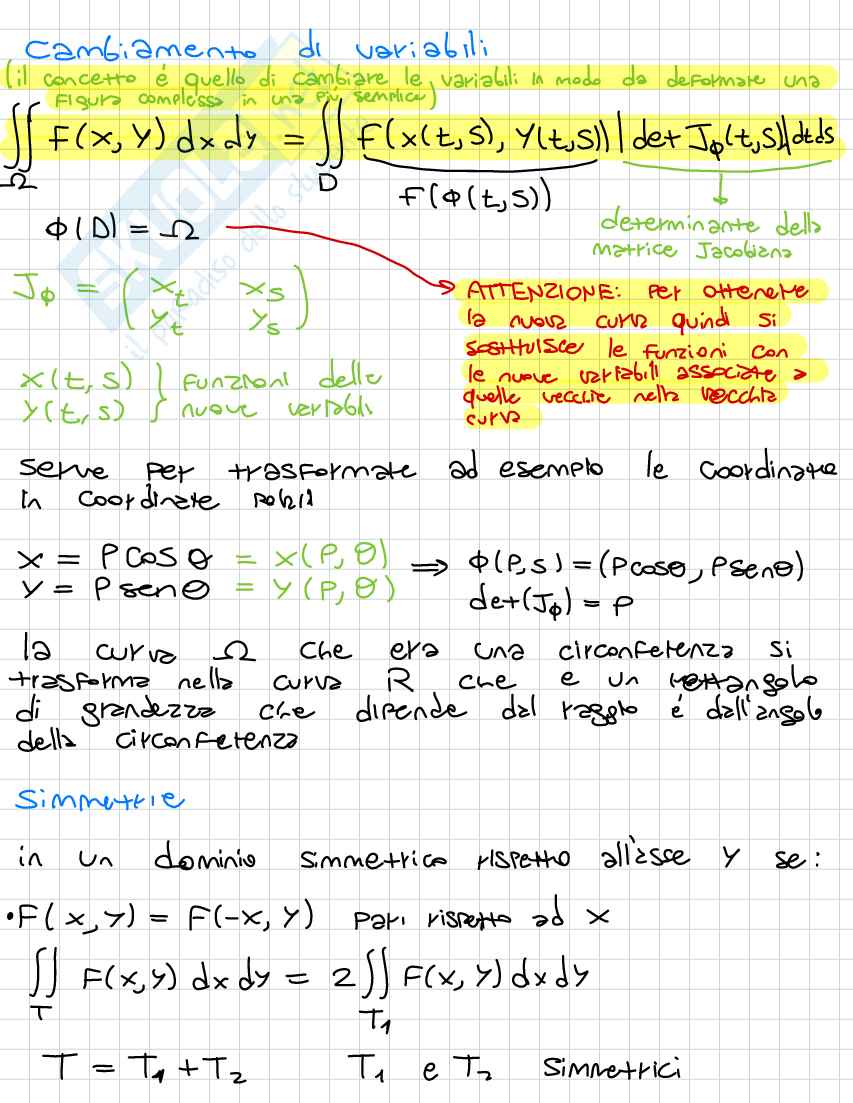 Cambiamento di variabili
(il concetto é quello di cambiare le variabili in modo da deformare una
figura complessa in una più semplice)
∬_Ω F(x, y) dx dy = ∬_D F(x(t,s), y(t,s)) |det J_Φ(t,s)| dt ds
F(Φ(t,s))
determinante della
matrice Jacobiana
Φ(D) = Ω
J_Φ = (x_t x_s
y_t y_s)
ATTENZIONE: per ottenere
la nuova curva quindi si
sostituisce le funzioni con
le nuove variabili associate a
quelle vecchie nella vecchia
curva
x(t, s) } funzioni delle
y(t, s) } nuove variabili
serve per trasformare ad esempio le coordinate
in coordinate polari
x = ρ cos θ = x(ρ, θ) ⟹ Φ(ρ, s) = (ρcosθ, ρsenθ)
y = ρ sen θ = y(ρ, θ) det(J_Φ) = ρ
la curva Ω che era una circonferenza si
trasforma nella curva R che e un rettangolo
di grandezza che dipende dal raggio é dall'angolo
della circonferenza
Simmetrie
in un dominio simmetrico rispetto all'asse y se:
• F(x, y) = F(-x, y) pari rispetto ad x
∬_T F(x,y) dx dy = 2∬_T1 F(x, y) dx dy
T = T1 + T2 T1 e T2 simmetrici